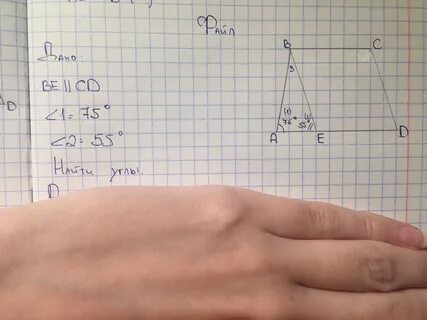 Файл
Дано:
BE || CD
∠1 = 75°
∠2 = 55°
Найти углы.
B
C
3
(1)
75°
(2)
55°
A
E
D
D